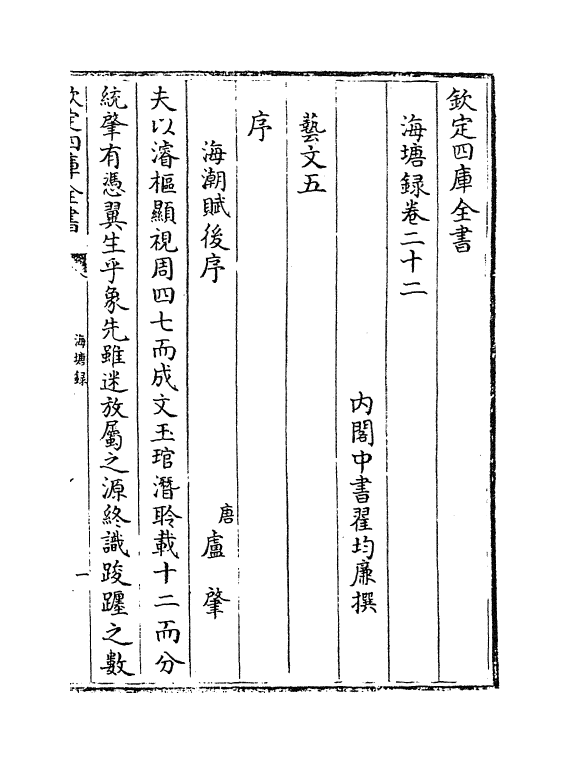 欽定四庫全書
海塘録卷二十二
内閣中書翟均廉撰
藝文五
序
海潮賦後序
唐盧肇
夫以濬樞顯視周四七而成文玉琯潛聆載十二而分
統肇有憑翼生乎象先雖迷放屬之源終識踆躔之數
欽定四庫全書
海塘録
一